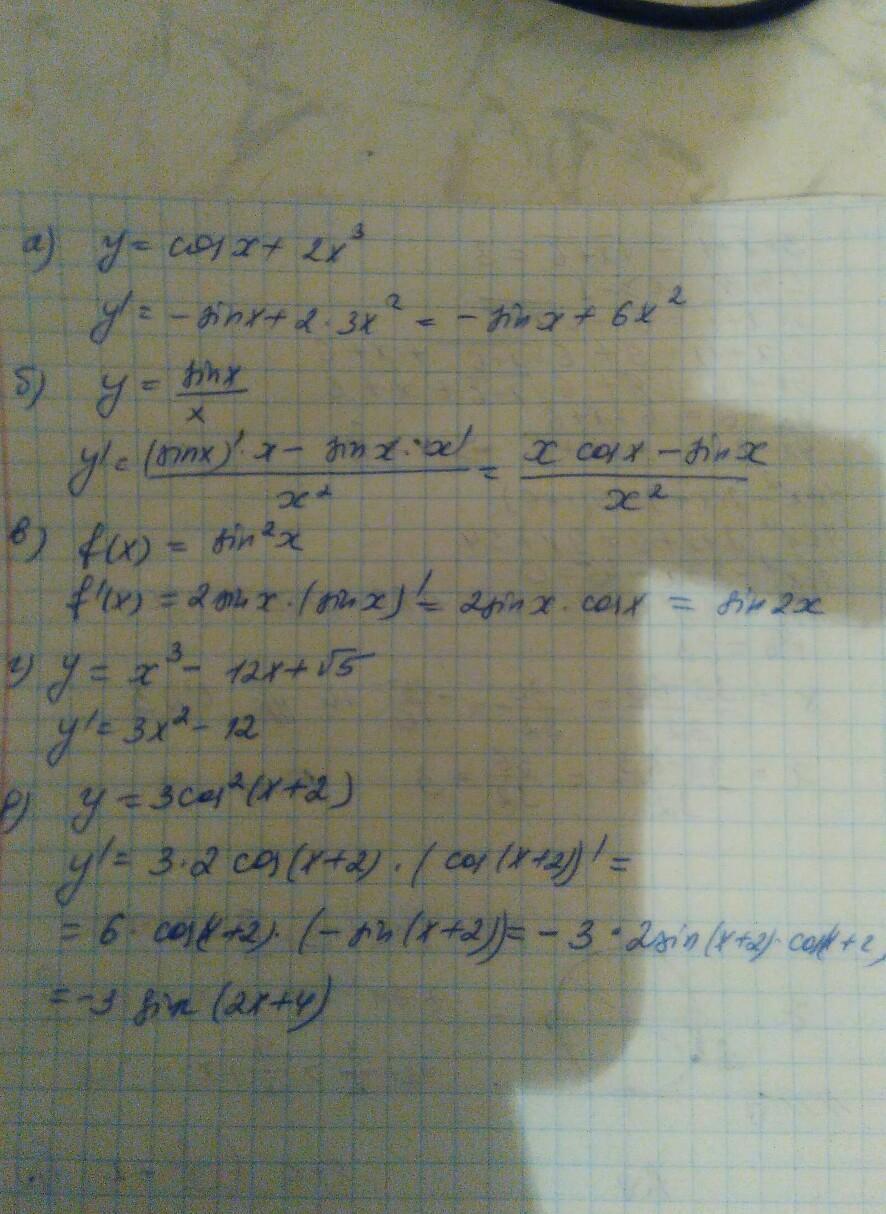 а) y = cos x + 2x³
y' = - sin x + 2 · 3x² = - sin x + 6x²
б) y = sin x / x
y' = ((sin x)' · x - sin x · x') / x² = (x cos x - sin x) / x²
в) f(x) = sin²x
f'(x) = 2 sin x · (sin x)' = 2 sin x · cos x = sin 2x
г) y = x³ - 12x + √5
y' = 3x² - 12
y = 3cos²(x+2)
y' = 3·2 cos(x+2) · (cos(x+2))' =
= 6 · cos(x+2) · (- sin(x+2)) = - 3 · 2 sin(x+2) · cos(x+2)
= -3 sin (2x+4)